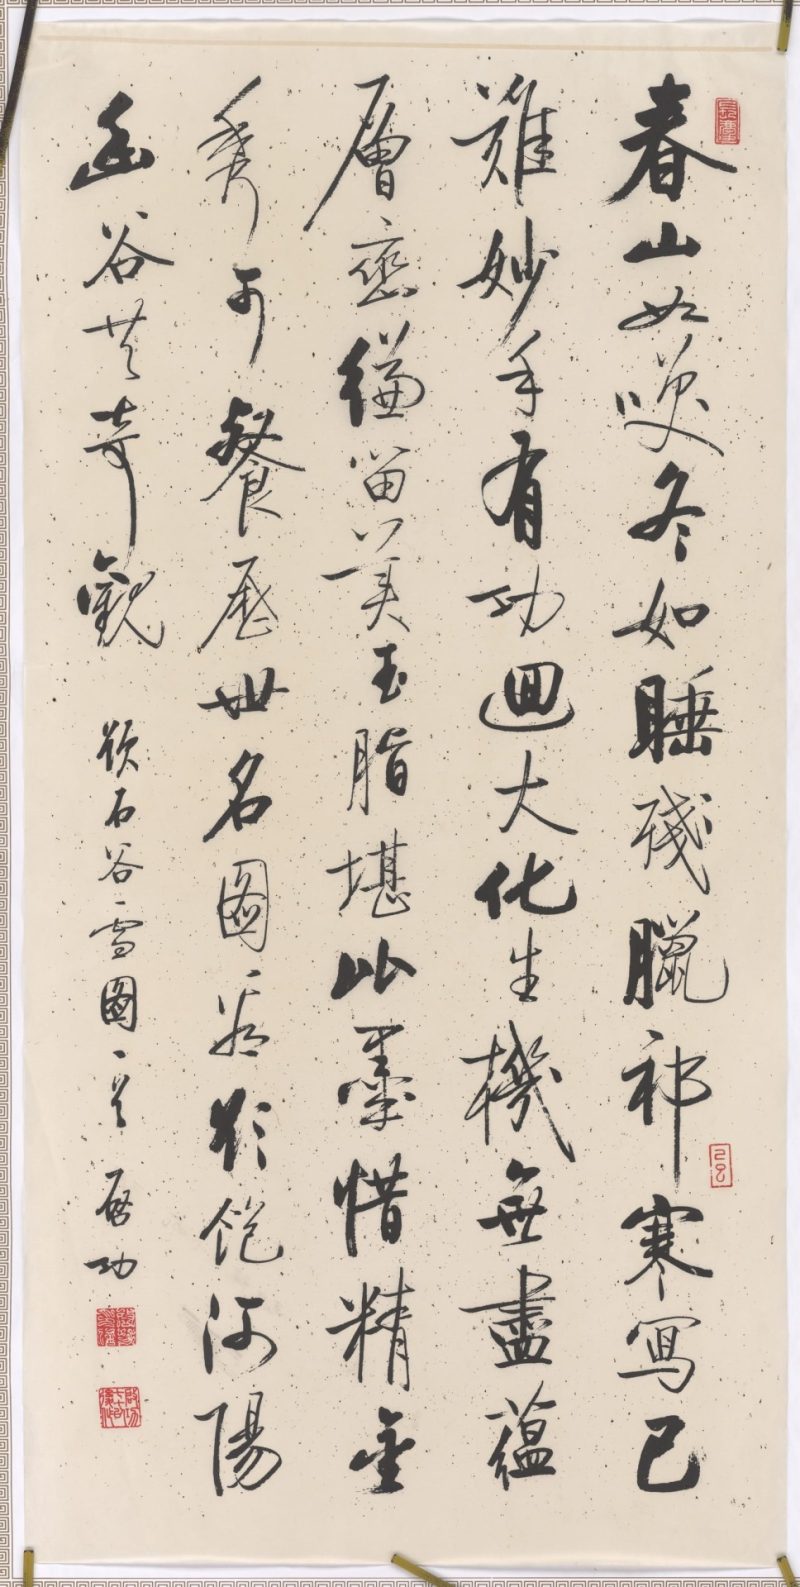 春山如笑冬如睡殘臘祁寒寫已
難妙手有功迴大化生機無盡蘊
層巒縑留美玉脂堪比墨惜精金
秀可餐歷世名圖吾飫飽河陽
幽谷共奇觀
題石谷雪圖一首
啓功